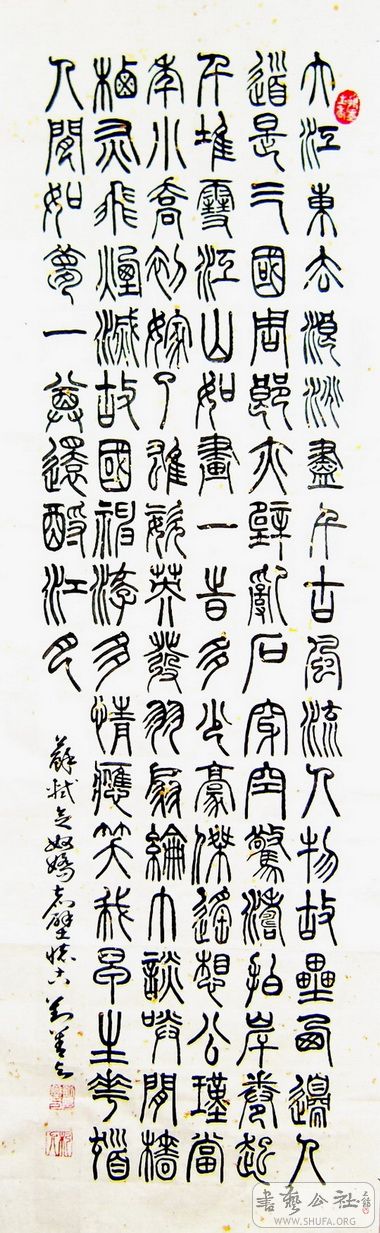 大江東去浪淘盡千古風流人物故壘西邊人
道是三國周郎赤壁亂石穿空驚濤拍岸卷起
千堆雪江山如畫一時多少豪傑遙想公瑾當
年小喬初嫁了雄姿英發羽扇綸巾談笑間檣
櫓灰飛煙滅故國神遊多情應笑我早生華髮
人間如夢一尊還酹江月
蘇軾念奴嬌赤壁懷古
書藝公社
WWW.SHUFA.ORG